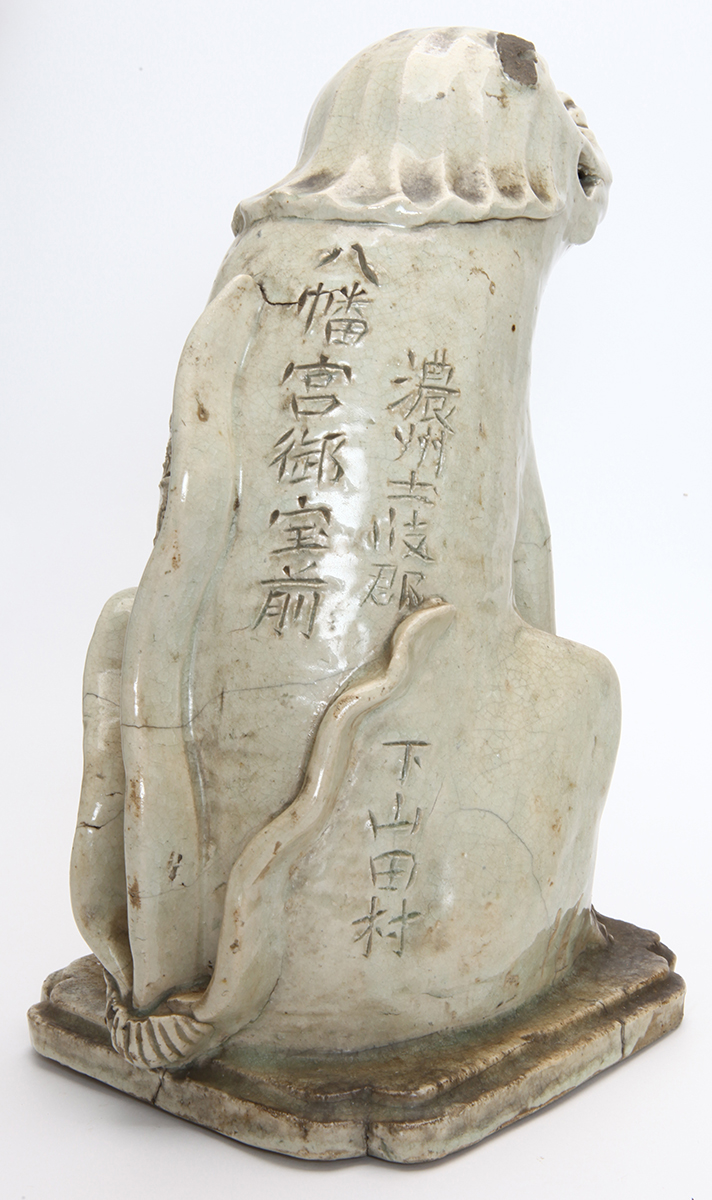 八幡宮御宝前
濃州土岐郡
下山田村